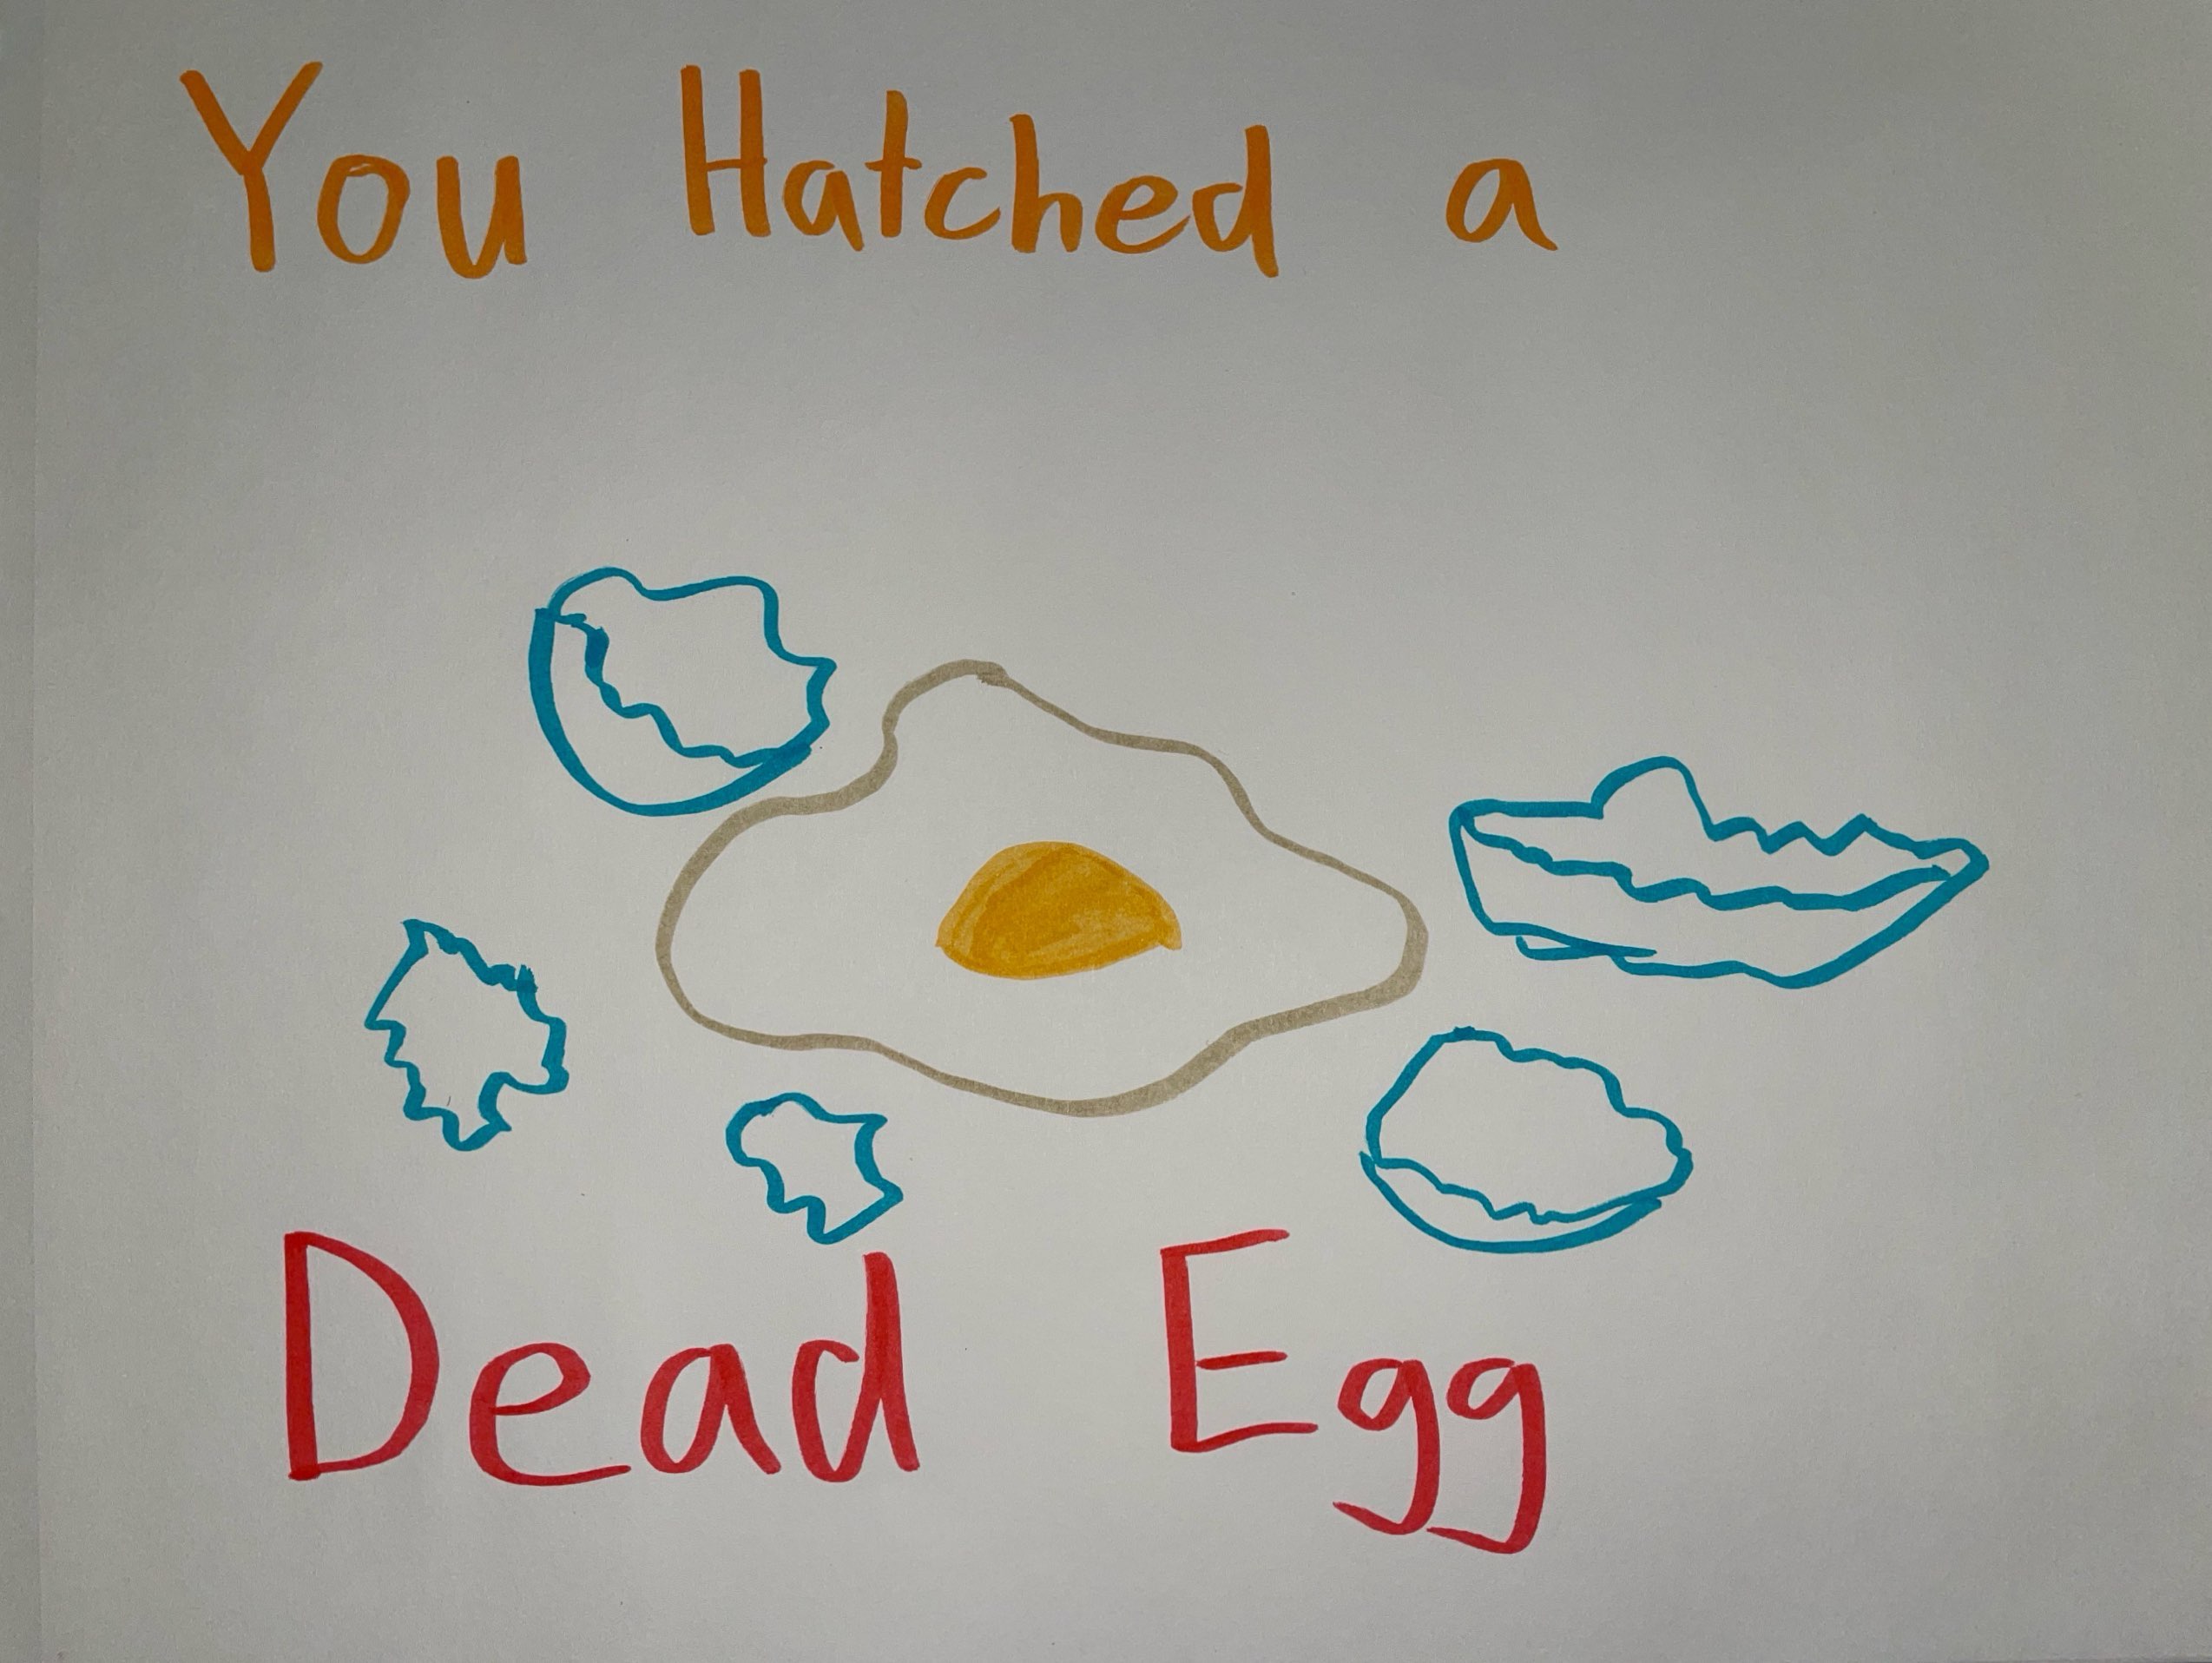 You Hatched a
Dead Egg